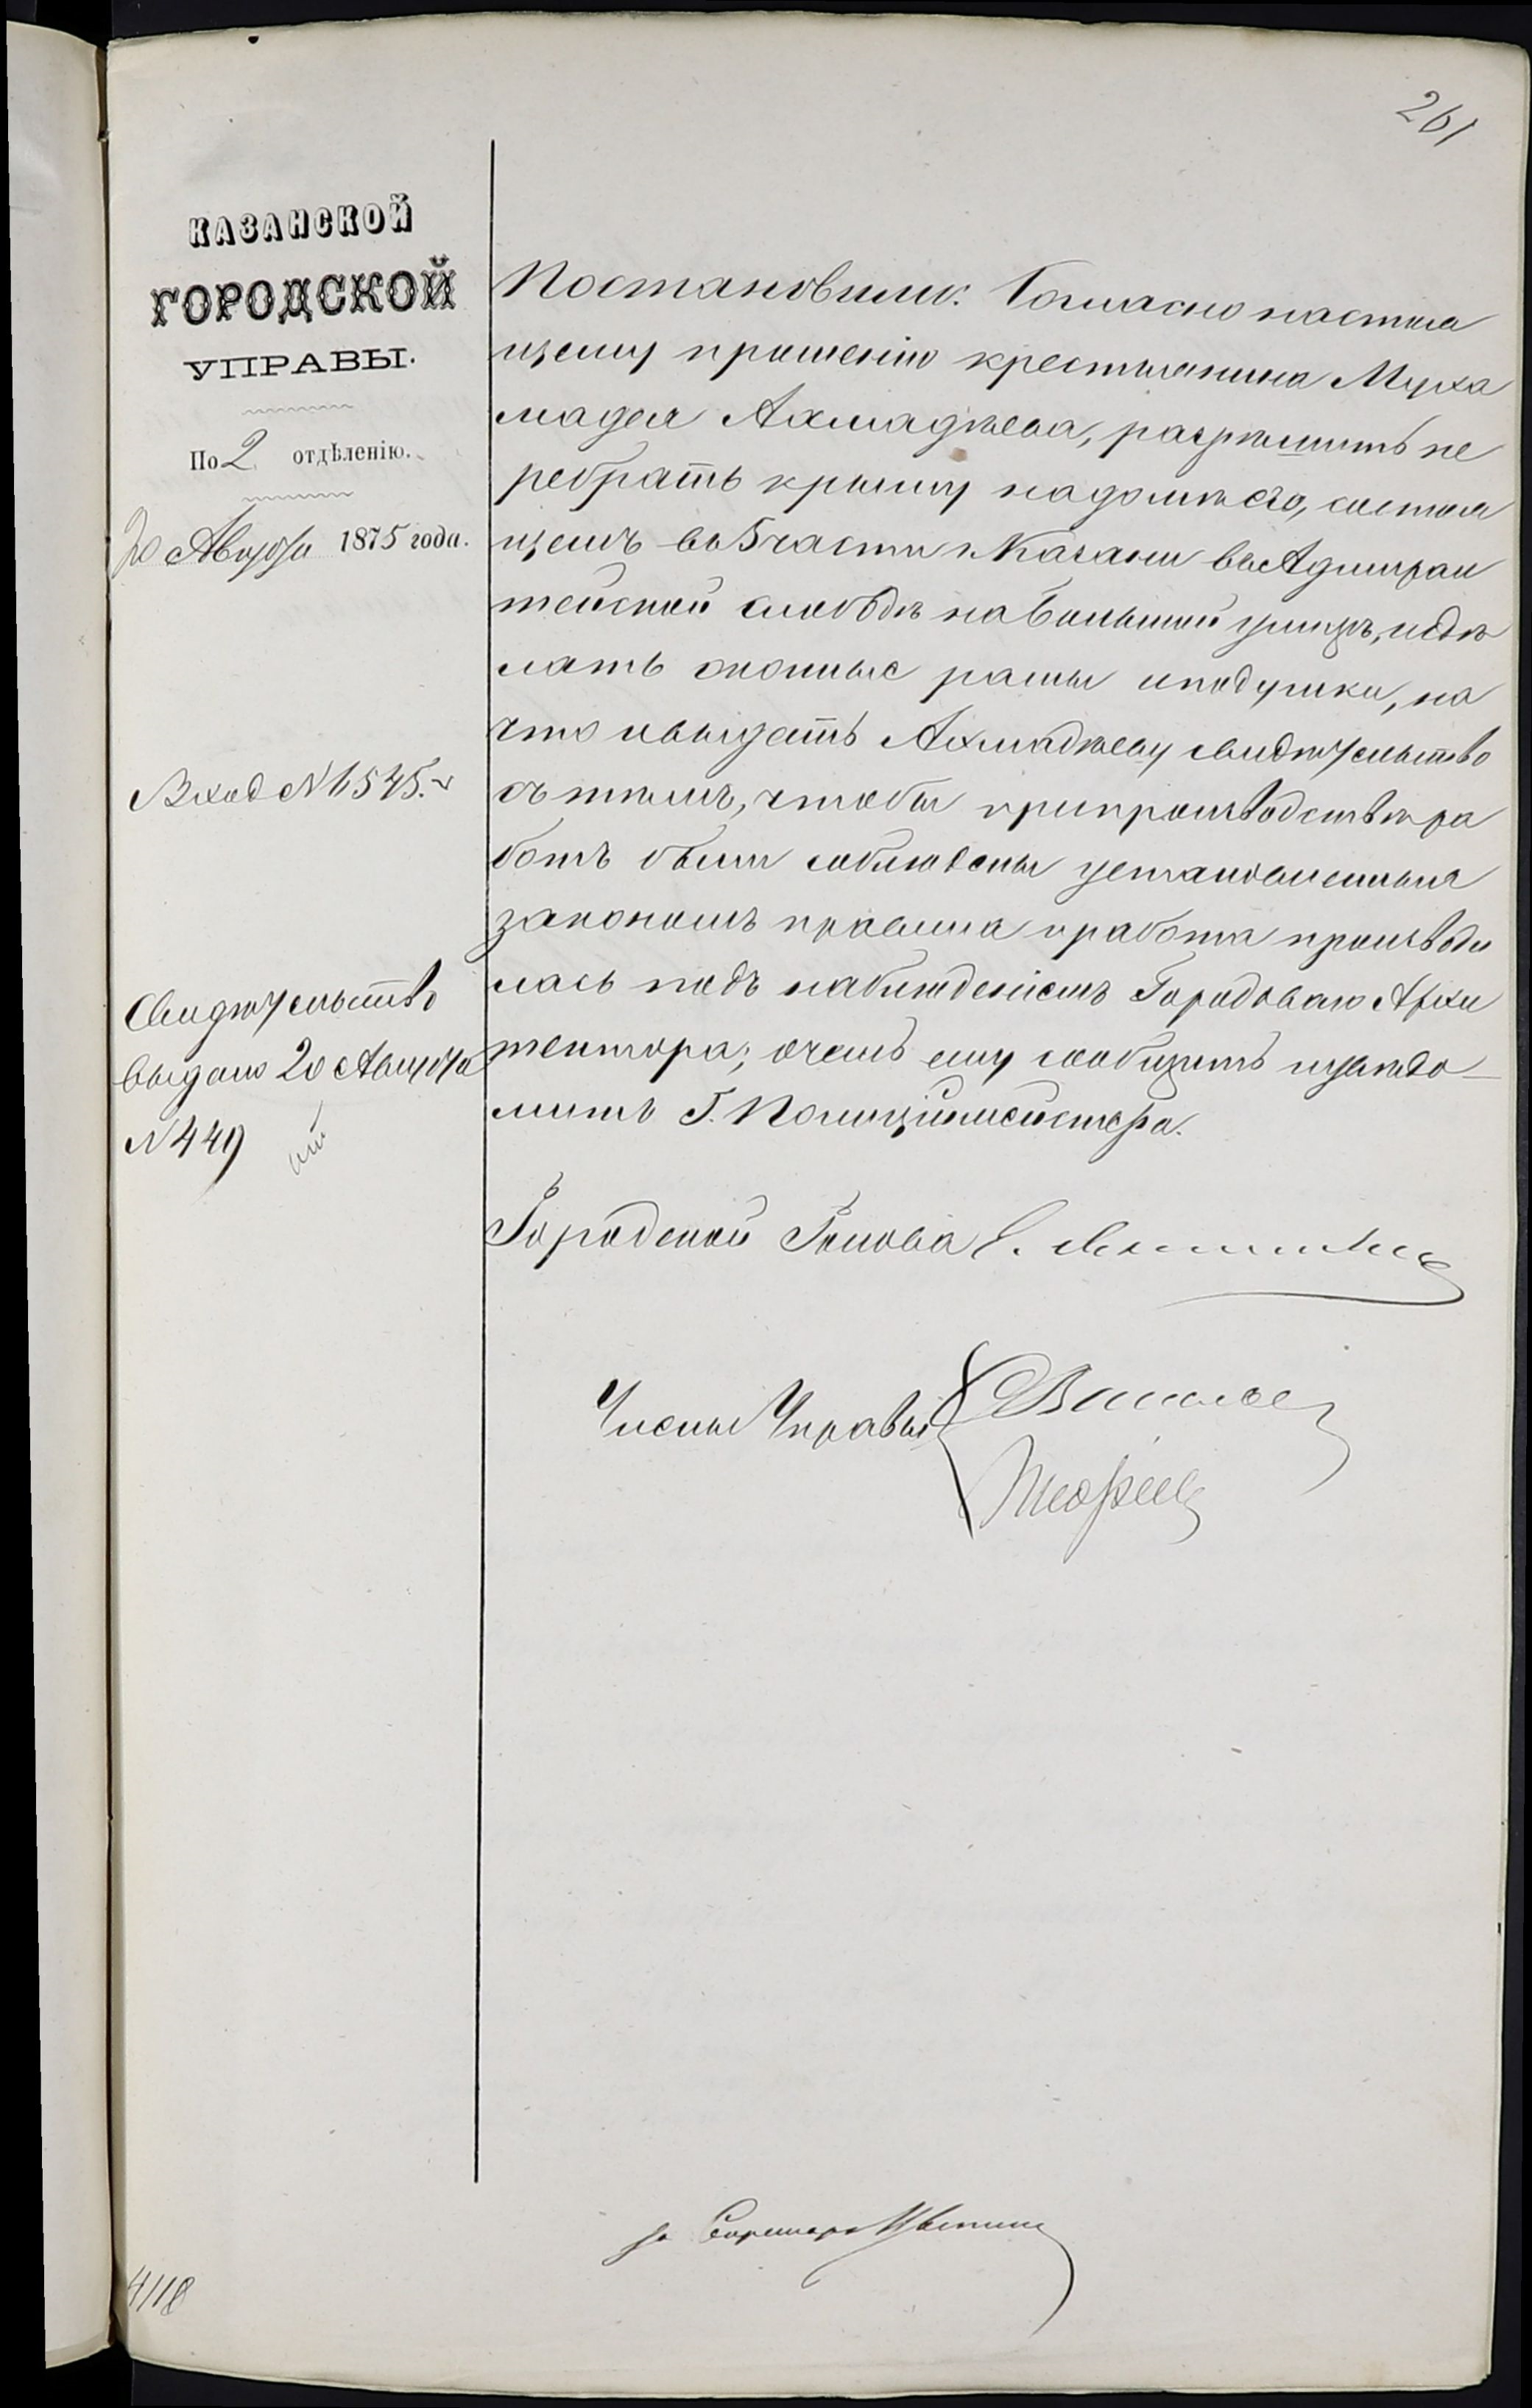 261
КАЗАНСКОЙ
ГОРОДСКОЙ
УПРАВЫ.
По 2 отдѣленію.
20 Августа 1875 года.
Вход № 6545.
Свидѣтельство
выдано 20 Августа
№ 449
Постановили: Согласно настоя
щему прошенію крестьянина Муха
мадея Ахмадѣева, разрѣшить пе
ребрать крышу на домѣ его, состоя
щемъ въ 5 части г. Казани въ Адмирал
тейской слободѣ на Большой улицѣ, и сдѣ
лать оконные рамы и подушки, на
что и выдать Ахмадѣеву свидѣтельство
съ тѣмъ, чтобы при производствѣ ра
ботъ были соблюдены установленныя
закономъ правила и работа производи
лась подъ наблюденіемъ Городоваго Архи
тектора; о чемъ ему сообщить и увѣдо-
мить Г. Полиціймейстера.
Городской Голова
Члены Управы
за Секретаря
4118